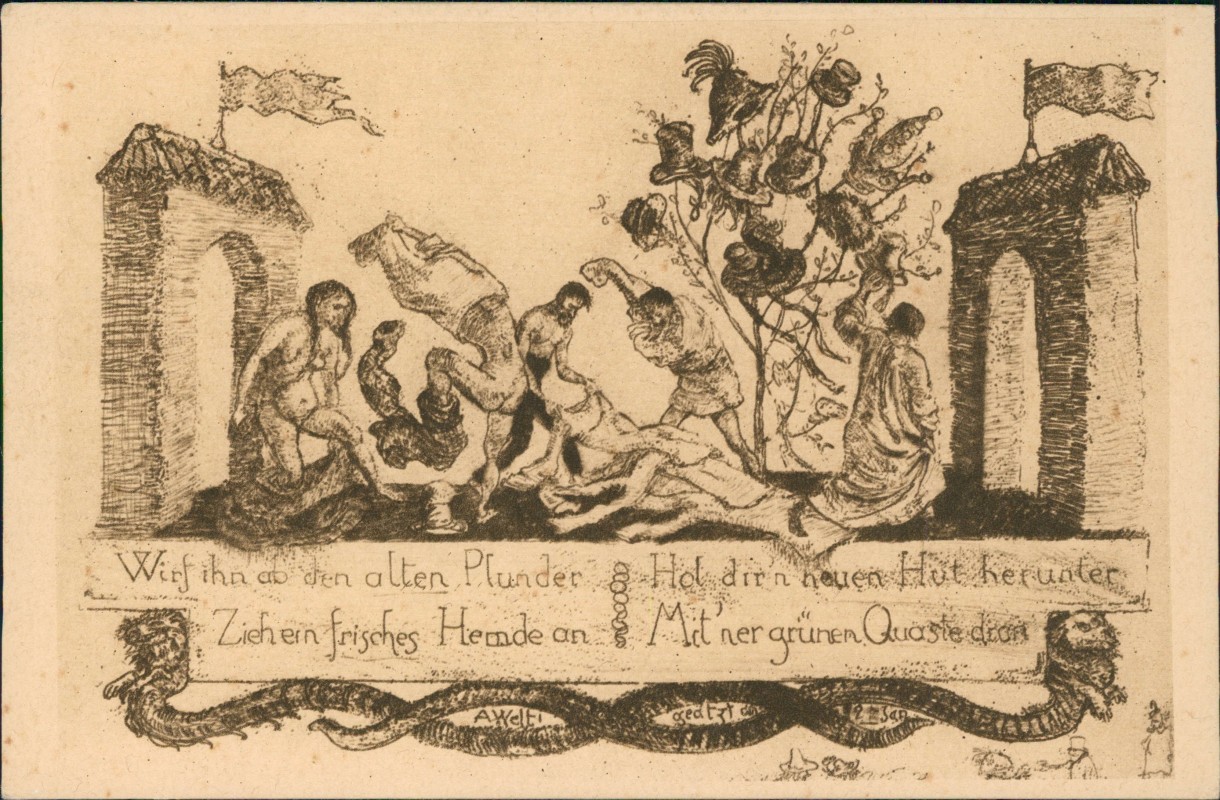 Wirf ihn ab den alten Plunder
Zieh ein frisches Hemde an
Hol dir'n neuen Hut herunter
Mit'ner grünen Quaste dran
A Welti
geätzt